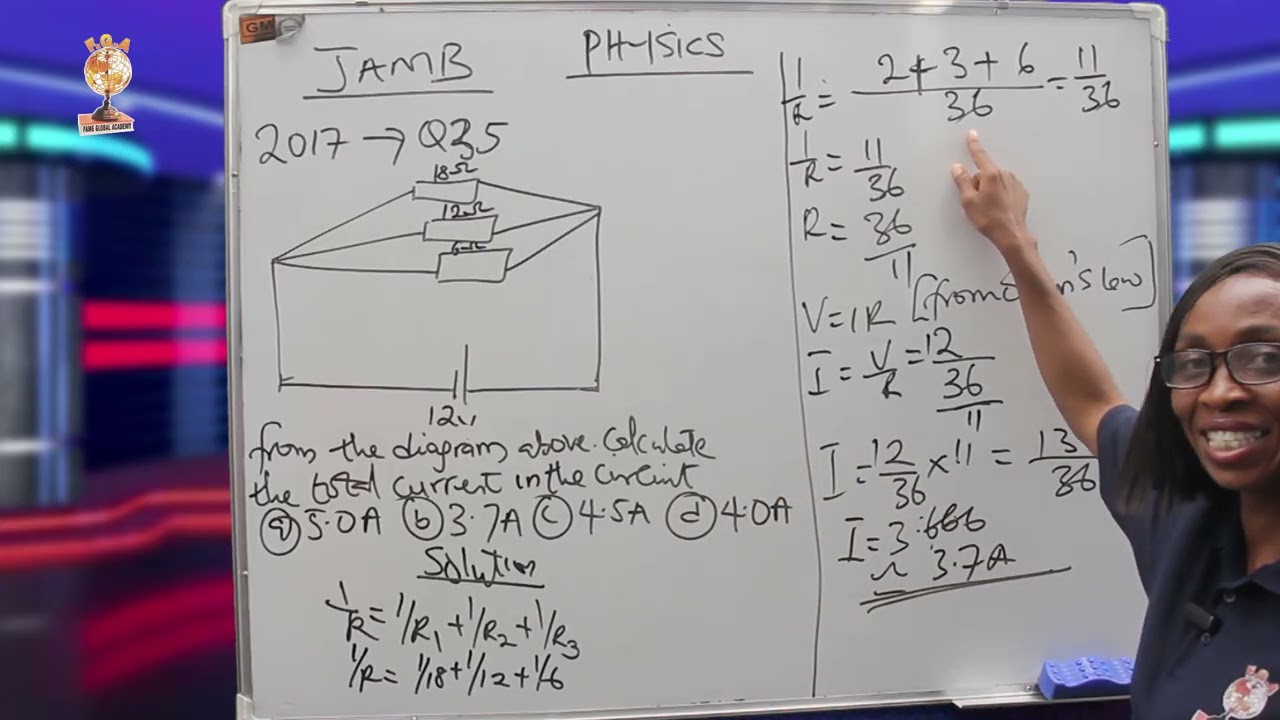 GM
F.G.A
FAME GLOBAL ACADEMY
JAMB
PHYSICS
2017 → Q35
18Ω
12Ω
6Ω
12V
from the diagram above. Calculate
the total current in the circuint
(a) 5.0A (b) 3.7A (c) 4.5A (d) 4.0A
Solution
1/R = 1/R1 + 1/R2 + 1/R3
1/R = 1/18 + 1/12 + 1/6
1/R = (2 + 3 + 6)/36 = 11/36
1/R = 11/36
R = 36/11
V = IR [from law]
I = V/R = 12/(36/11)
I = 12/36 × 11 = /36
I = 3.666
≈ 3.7A